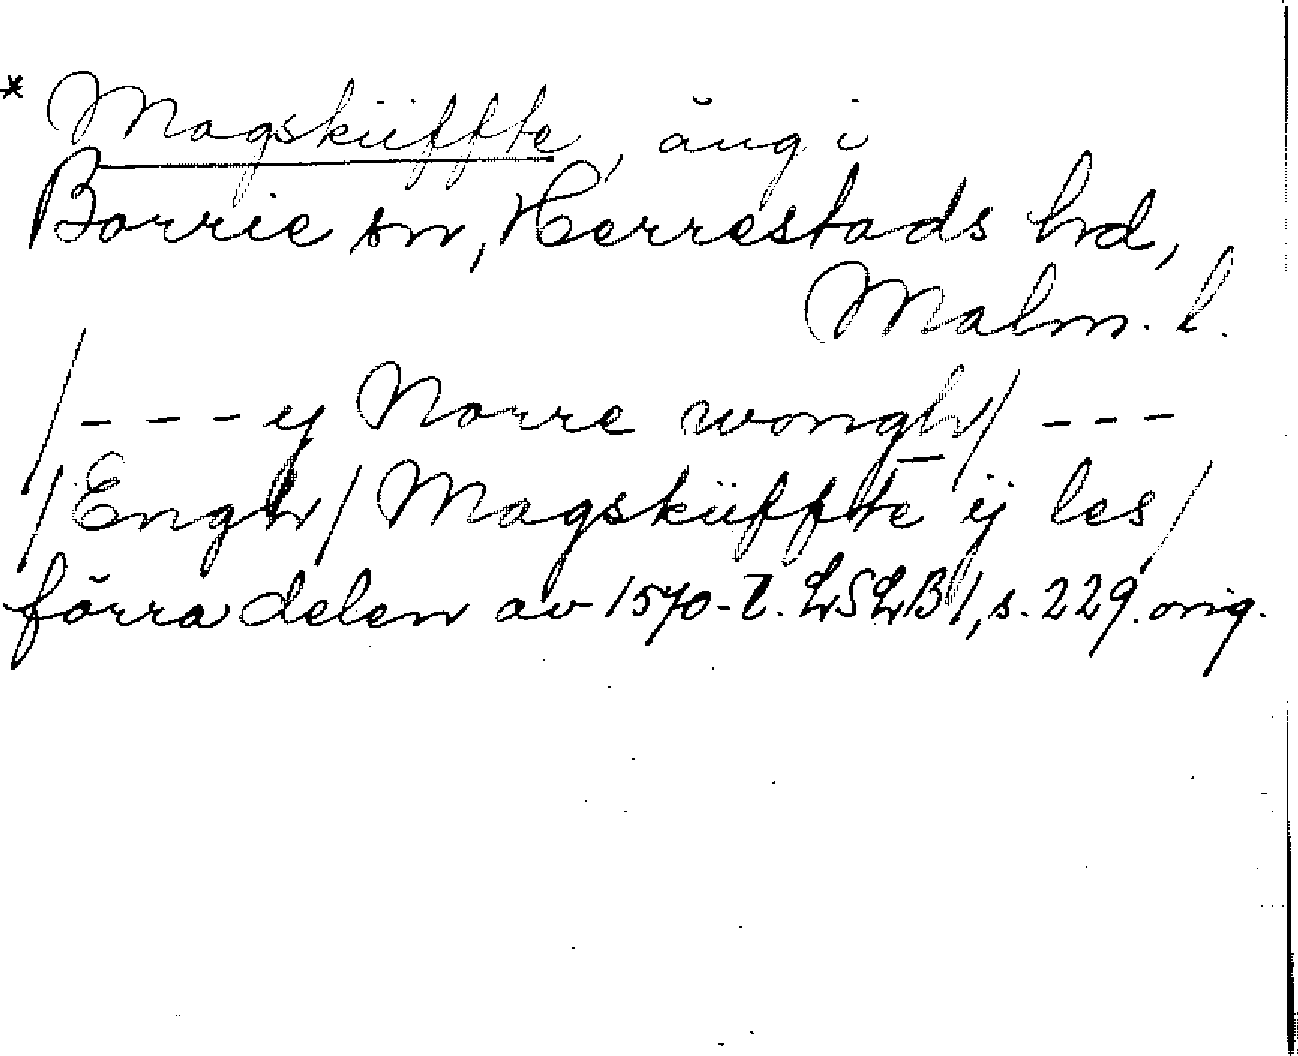 * Magsküffte, äng i
Borrie sn, Herrestads hd,
Malm. l.
/--- ij Norre wongh/ ---
/Engh/ Magsküffte ij les/
förra delen av 1570-t. LSLB 1, s. 229. orig.